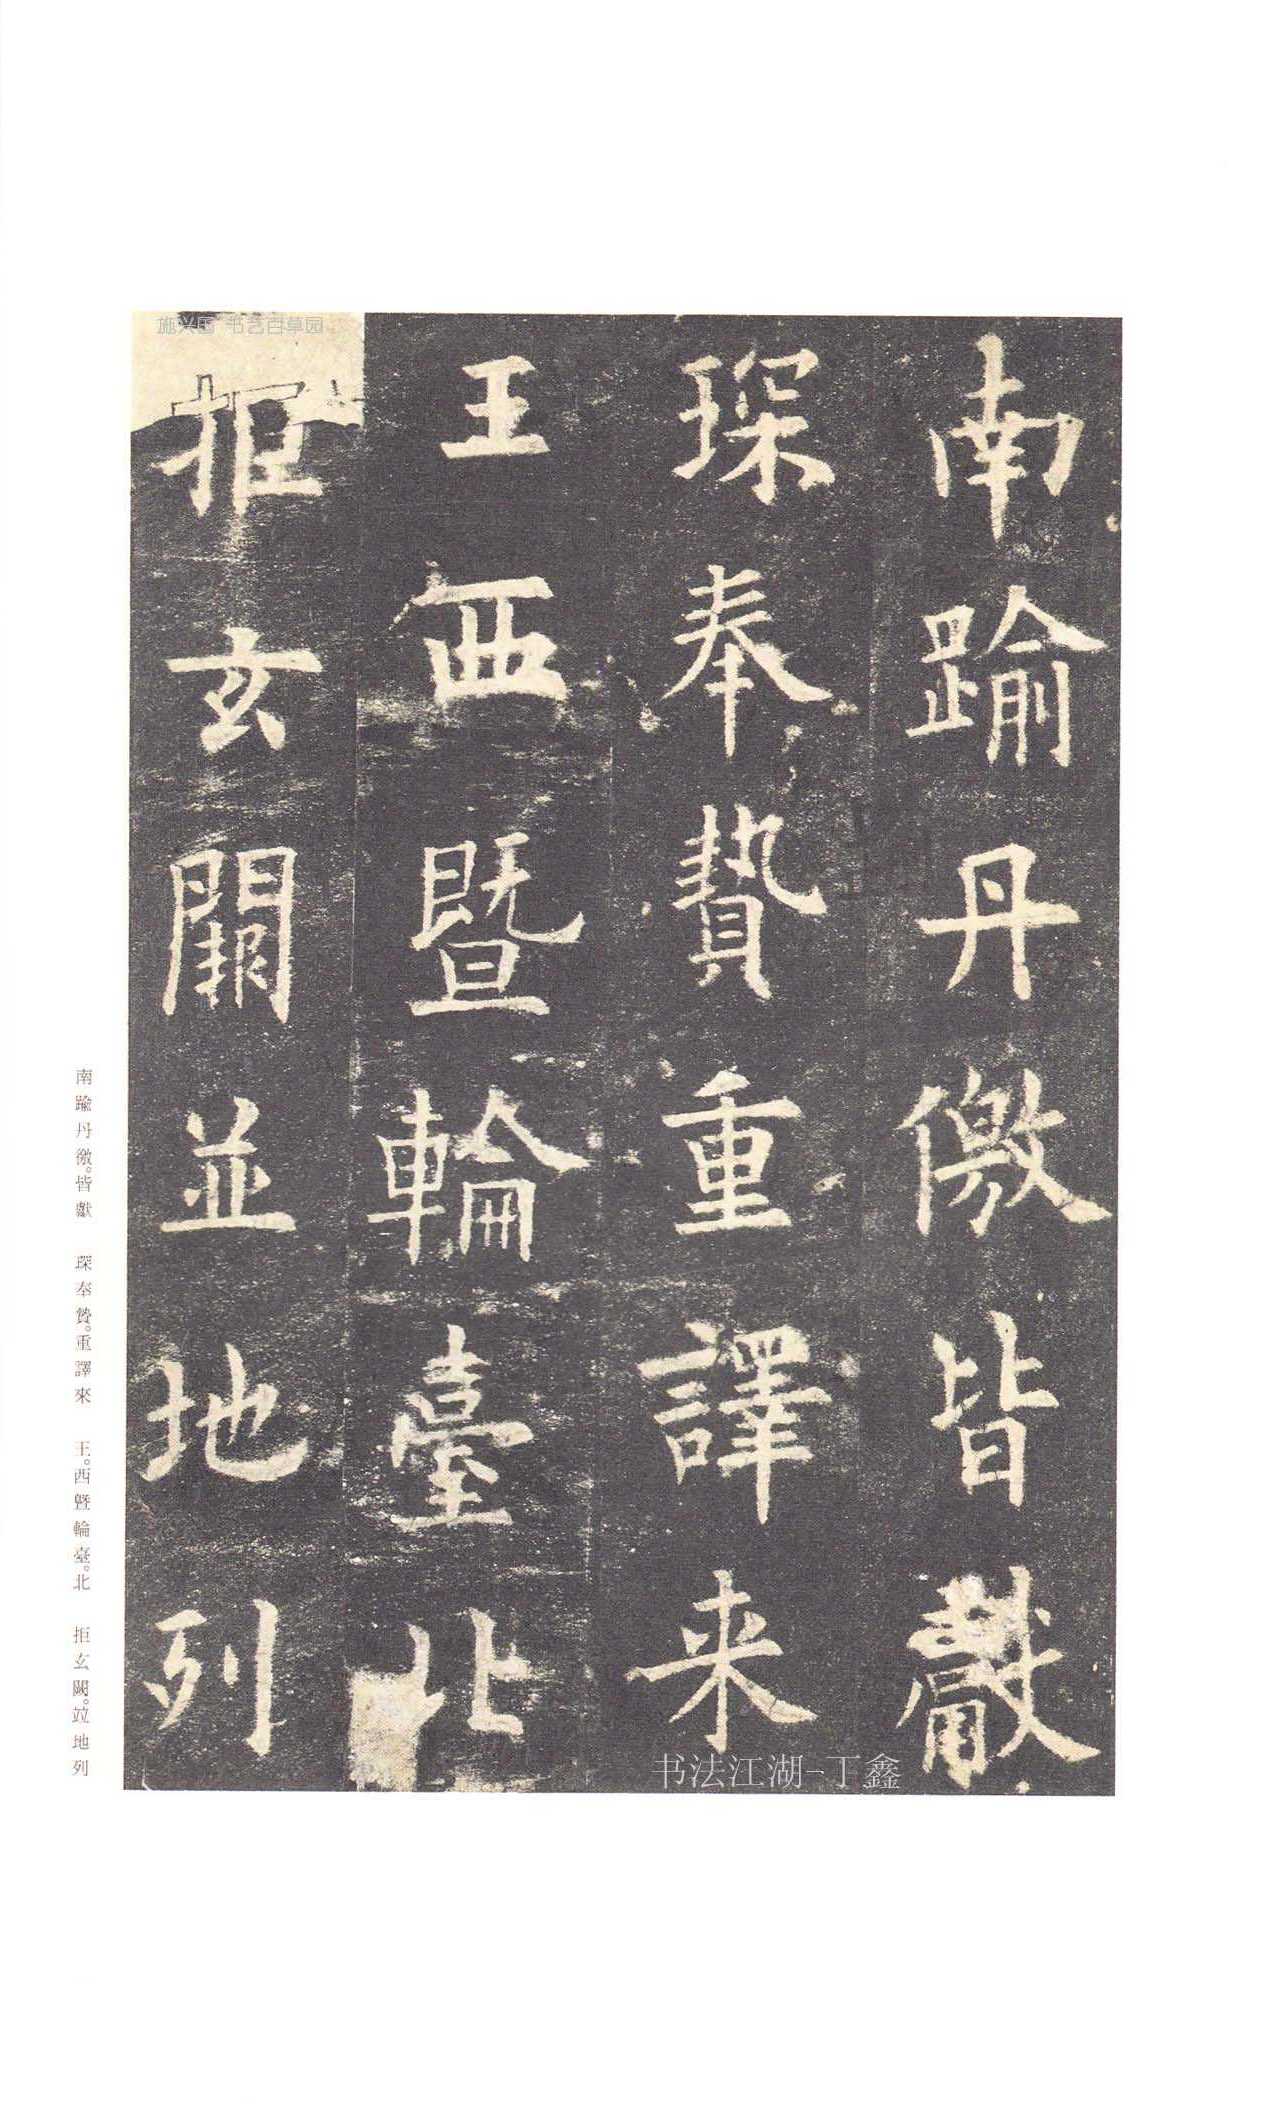 南踰丹儌皆獻
琛奉贄重譯来
王西暨輪臺北
拒玄闕並地列
南踰丹徼。皆獻　琛奉贄。重譯來　王。西曁輪臺。北　拒玄闕。竝地列
施兴国 书艺百草园
书法江湖-丁鑫